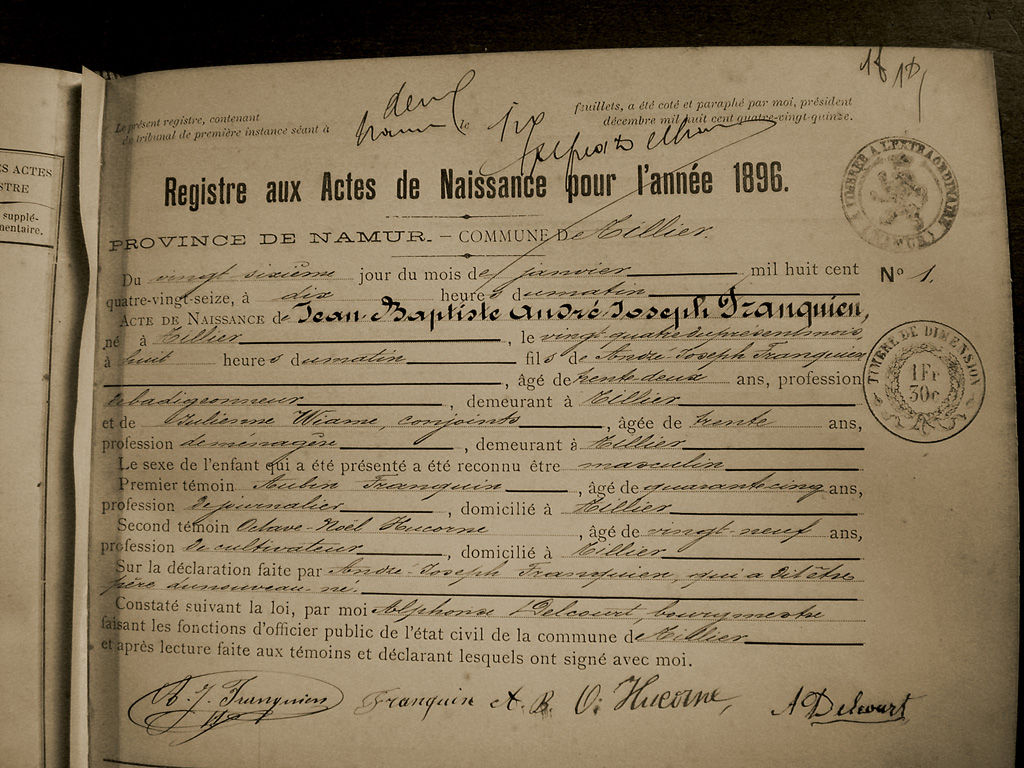 S ACTES
STRE
supplé-
mentaire.
18 18
Le présent registre, contenant deux feuillets, a été coté et paraphé par moi, président
du tribunal de première instance séant à Namur le décembre mil huit cent quatre-vingt-quinze.
Registre aux Actes de Naissance pour l'année 1896.
PROVINCE DE NAMUR. — COMMUNE De Tillier.
TIMBRE A L'EXTRAORDINAIRE
Du vingt sixième jour du mois de janvier mil huit cent
N° 1.
quatre-vingt-seize, à dix heures du matin
ACTE DE NAISSANCE de Jean-Baptiste André Joseph Franquien,
né à Tillier, le vingt quatre du présent mois,
à huit heures du matin fils de André-Joseph Franquien
, âgé de trente deux ans, profession
de badigeonneur, demeurant à Tillier
et de Julienne Wiame, conjoints, âgée de trente ans,
profession de ménagère, demeurant à Tillier
Le sexe de l'enfant qui a été présenté a été reconnu être masculin
Premier témoin Aubin Franquin, âgé de quarante cinq ans,
profession de journalier, domicilié à Tillier
Second témoin Octave-Noël Hucorne, âgé de vingt-neuf ans,
profession de cultivateur, domicilié à Tillier
Sur la déclaration faite par André-Joseph Franquien, qui a dit être
père du nouveau-né.
Constaté suivant la loi, par moi Alphonse Delcourt, bourgmestre
faisant les fonctions d'officier public de l'état civil de la commune de Tillier
et après lecture faite aux témoins et déclarant lesquels ont signé avec moi.
TIMBRE DE DIMENSION
1 Fr
30c
A. J. Franquien Franquin A. B. O. Hucorne, A Delcourt